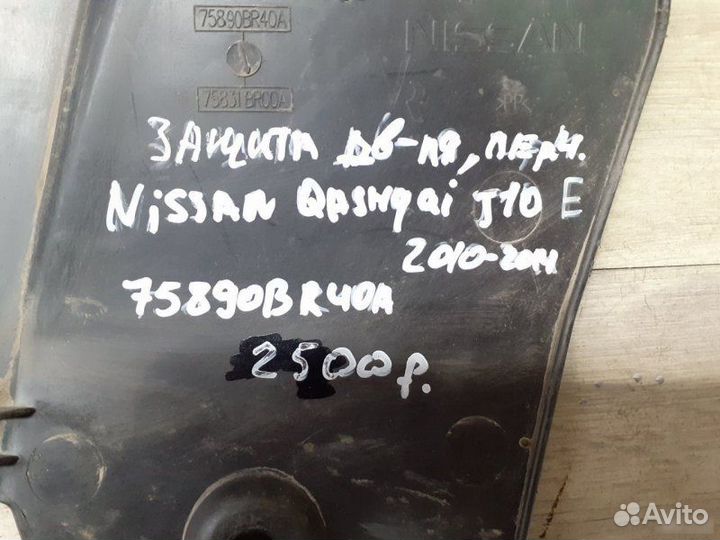 75890BR40A
NISSAN
75831BR00A
ЗАЩИТА ДВ-ЛЯ, ПЕРЕДН.
NiSSAN QASHQAi J10 E
2010-2014
75890BR40A
2500р.
Avito